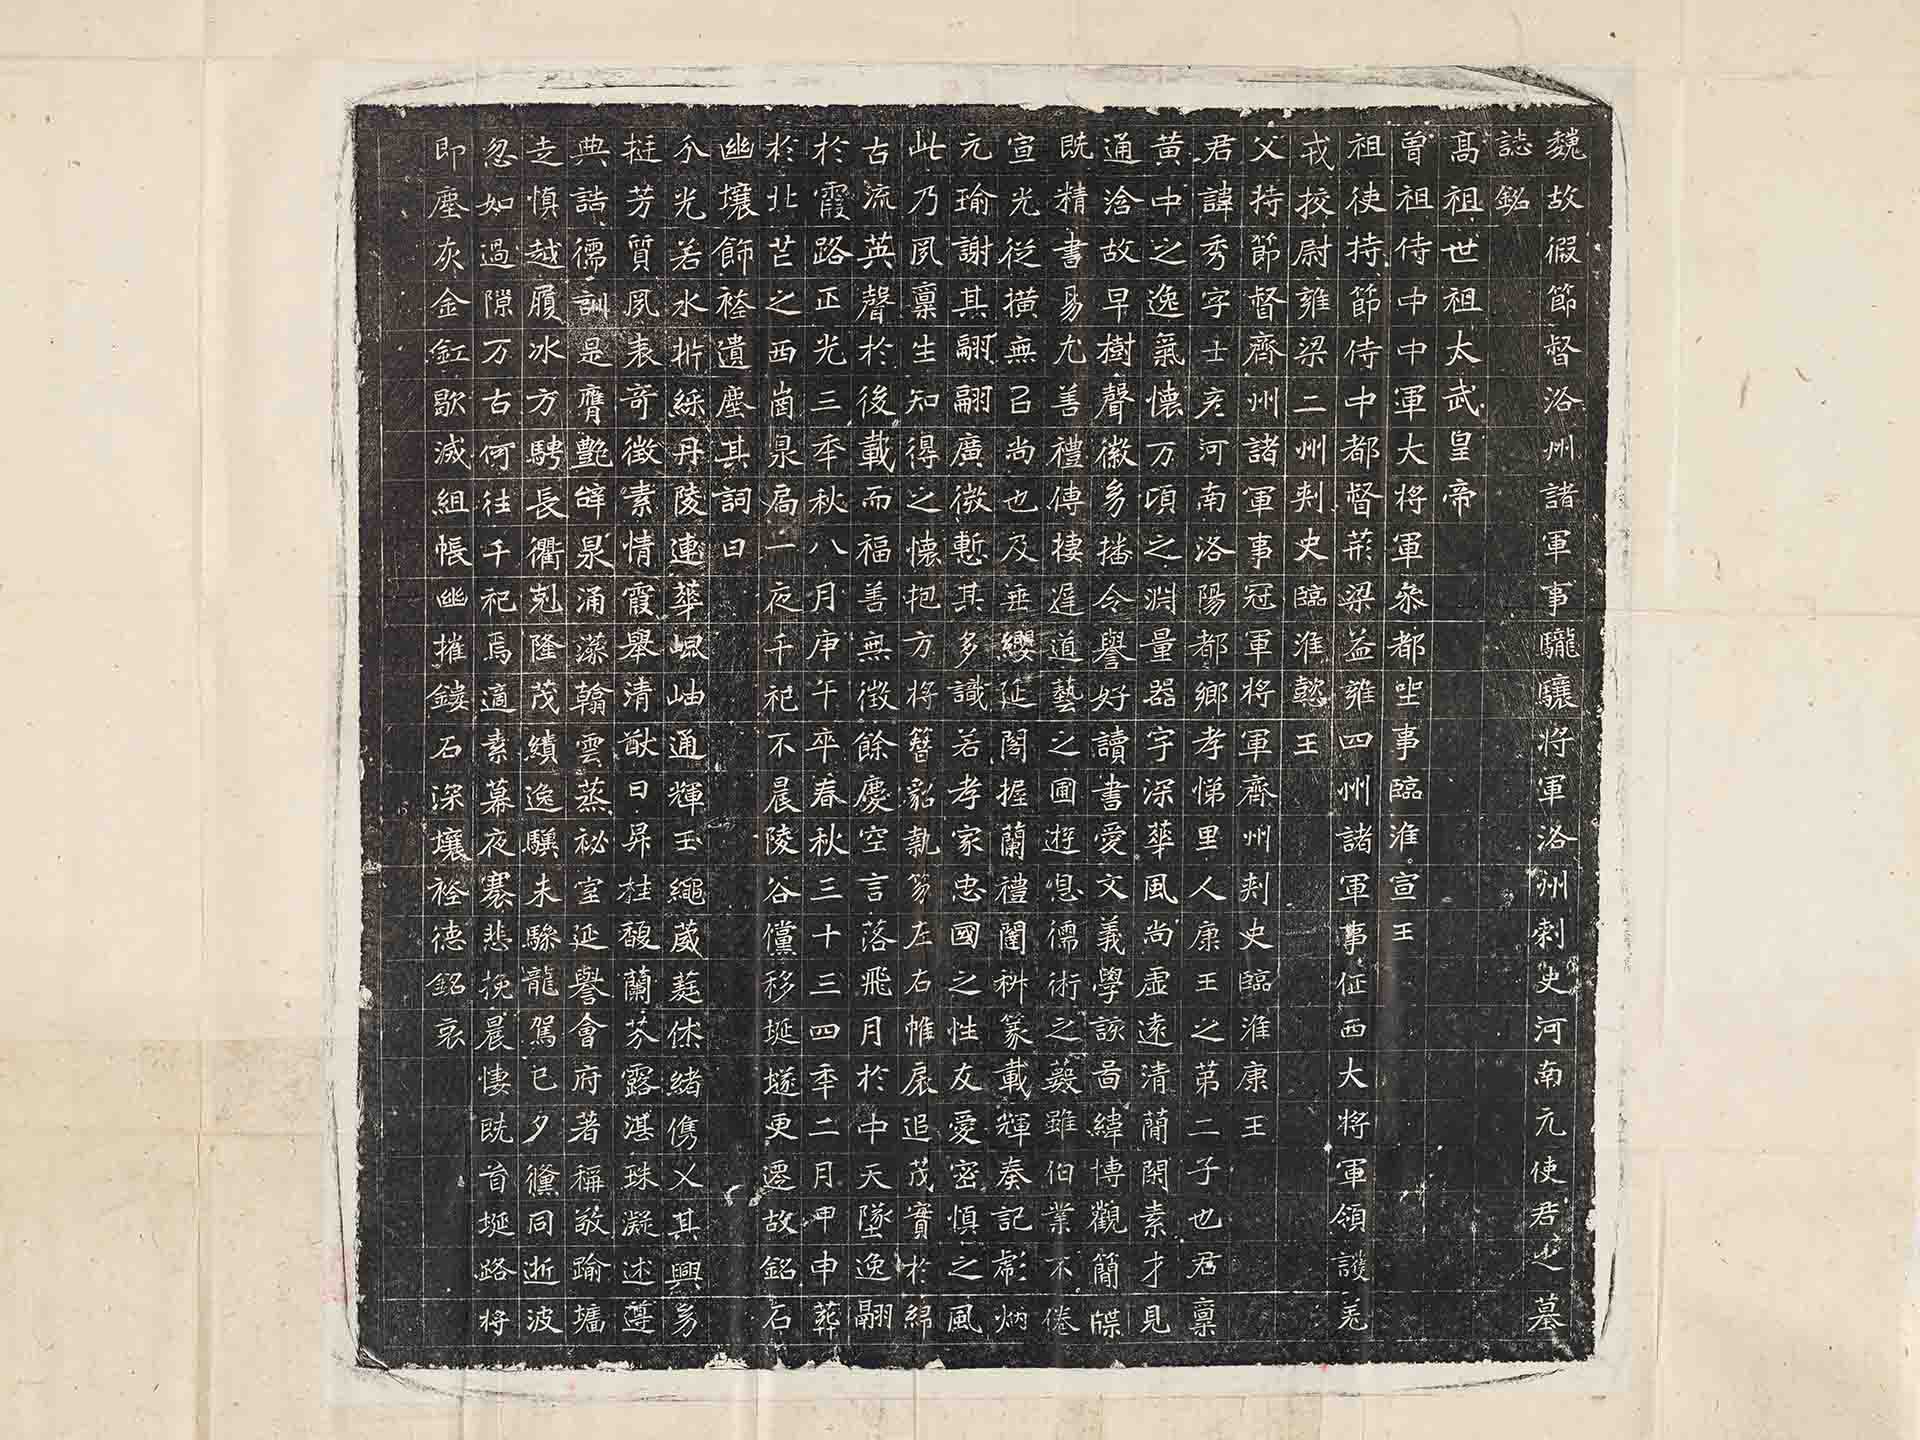 魏故假節督洛州諸軍事驪驤將軍洛州刺史河南元使君之墓
誌銘
高祖世祖太武皇帝
曾祖侍中中軍大將軍叅都坐事臨淮宣王
祖使持節侍中都督荊梁益雍四州諸軍事征西大將軍領護羌
戎校尉雍梁二州刺史臨淮懿王
父持節督齊州諸軍事冠軍將軍齊州刺史臨淮康王
君諱秀字士彥河南洛陽都鄉孝悌里人康王之第二子也君稟
黃中之逸氣懷万頃之淵量器宇深華風尚虛遠清蕳閑素才見
通洽故早樹聲徽多播令譽好讀書愛文義學該啚緯博觀簡牒
既精書易尤善禮傳棲遲道藝之圃遊息儒術之藪雖伯業不倦
宣光從橫無㠯尚也及垂纓延閣握蘭禮闈科篆載輝奏記彪炳
元瑜謝其翩翩廣微慙其多識若孝家忠國之性友愛密慎之風
此乃夙稟生知得之懷抱方將簪貂執笏左右帷扆追茂實於綿
古流英聲於後載而福善無徵餘慶空言落飛月於中天墜逸翮
於霞路正光三年秋八月庚午卒春秋三十三四年二月甲申葬
於北芒之西崗泉扃一夜千祀不晨陵谷儻移埏墜更遷故銘石
幽壤飾袿遺塵其詞曰
分光若水析綵丹陵連華崐岫通輝玉繩葳蕤休緒儁乂其興剪
挺芳質夙表奇徵素情霞舉清猷日昇桂馥蘭芬露湛珠凝述遵
典誥儒訓是膺艷辭泉涌藻翰雲蒸祕室延譽會府著稱敬踰壚
走慎越履冰方騁長衢剋隆茂績逸驥未騁龍駕已夕儻同逝波
忽如過隙万古何往千祀焉適素幕夜褰悲挽晨悽既首埏路將
即塵灰金釭歇滅組帳幽摧鏤石深壤袿德銘哀